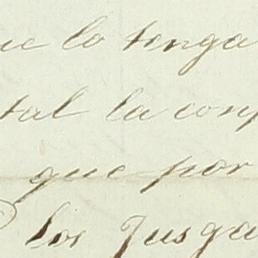 que lo tenga
tal la conf
que por
los Jusga